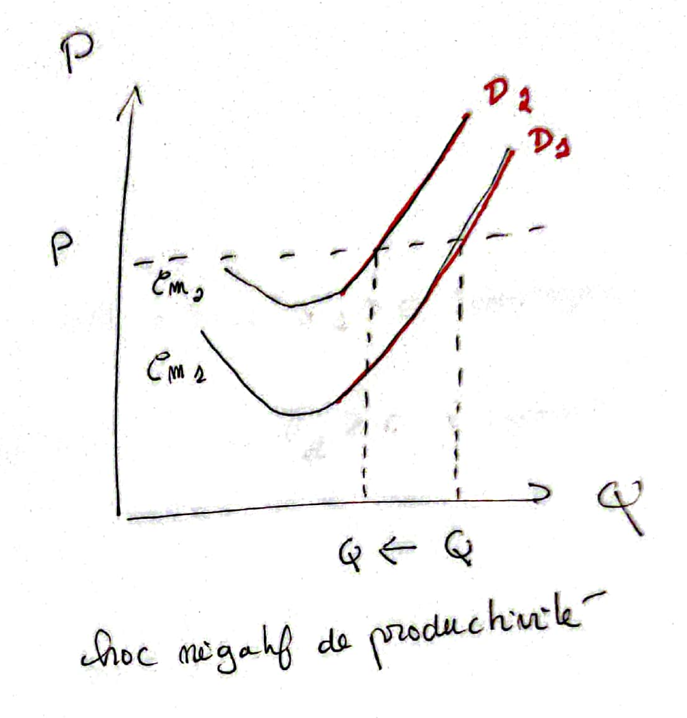 P
D₂
D₁
P
Cm₂
Cm₁
Q
Q ← Q
choc négatif de productivité